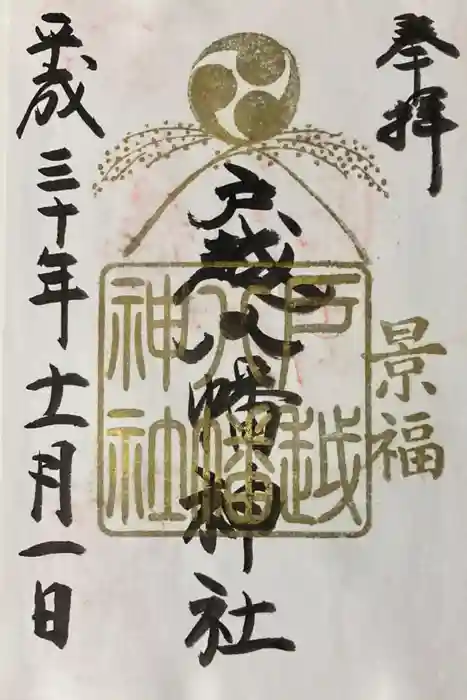 奉拝
景福
戸越八幡神社
戸越
八幡
神社
平成三十年十一月一日